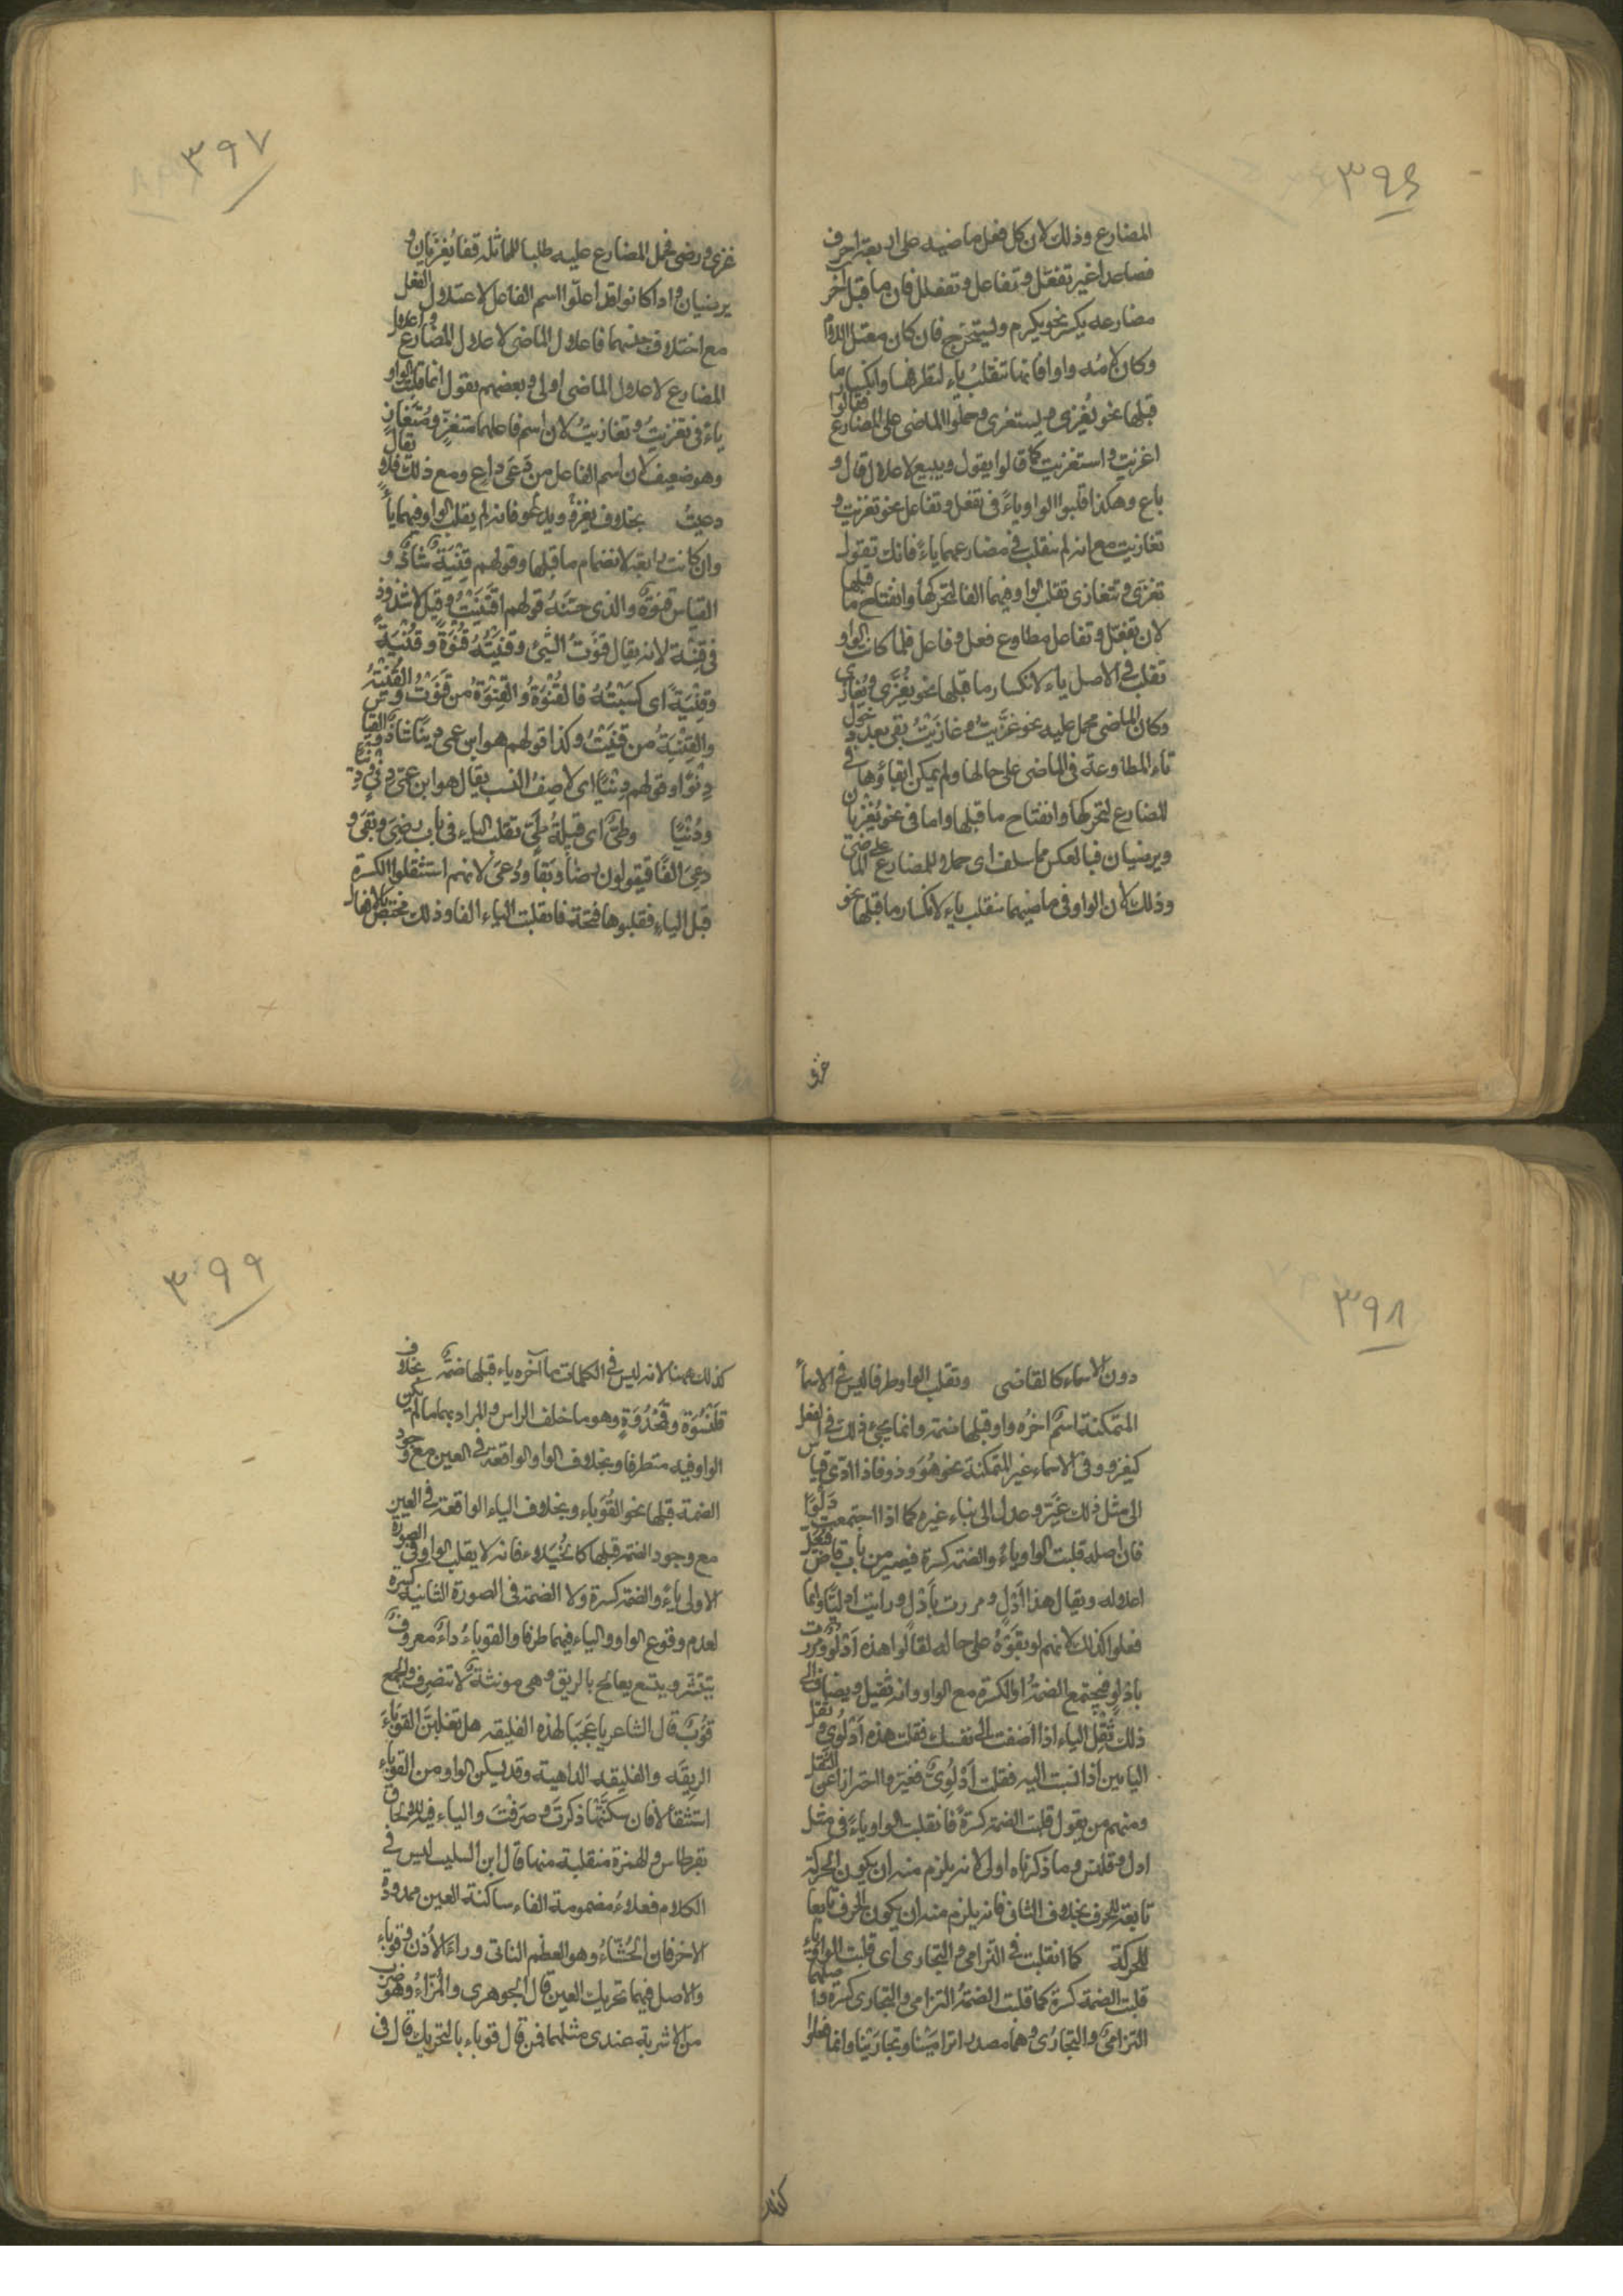 ٣٩٦
المضارع وذلك لان كل فعل ماضيه على اربعة احرف
فصاعدا غير تفعّل وتفاعل وتفعلل فان ما قبل آخر
مضارعه يكسر نحو يكرم ويستخرج فان كان معتل اللام
وكان لامه واوا فانها تنقلب ياء لتطرفها وانكسار ما
قبلها نحو يُغزى ويستغزى وحملوا الماضى على المضارع فقالوا
اغزيت واستغزيت كما قالوا يقول ويبيع لاعلال قال و
باع وهكذا قلبوا الواو ياءً فى تفعل وتفاعل نحو تغزيت و
تغازيت مع انه لم تنقلب فى مضارعهما ياءً فانك تقول
تغزى وتتغازى تقلب الواو فيهما الفا لتحركها وانفتاح ما قبلها
لان تفعّل وتفاعل مطاوع فعل وفاعل فلما كانت الواو
تقلب فى الاصل ياء لانكسار ما قبلها نحو يُغَزّى ويُغازى
وكان الماضى محمل عليه نحو غزّيتُ وغازيتُ بقى بعد دخول
تاء المطاوعة فى الماضى على حالها ولم يمكن ابقاؤها فى
المضارع لتحركها وانفتاح ما قبلها واما فى نحو يُغزيان
ويرضيان فبالعكس مما سلف اى حملوا المضارع على الماضى
وذلك لان الواو فى ماضيهما تنقلب ياء لانكسار ما قبلها نحو
غزى
٣٩٧
غزى ورضى فحمل المضارع عليه طلبا للماثلة فقا يُغزيان و
يرضيان واذا كانوا قد اعلّوا اسم الفاعل لاعتلال الفعل
مع اختلاف جنسهما فاعلال الماضى لاعلال المضارع واعلال
المضارع لاعلال الماضى اولى وبعضهم يقول انما قلبت الواو
ياءً فى تغزيتُ وتغازيتُ لان اسم فاعلهما متغزٍ ومتغازٍ
وهو ضعيف لان اسم الفاعل من دعى داعٍ ومع ذلك فلا يقال
دعيتُ بخلاف يغزو ويدعو فانه لم يقلب الواو فيهما ياءً
وان كانت رابعة لانضمام ما قبلها وقولهم قِنْيَة شاذٌ و
القياس قنوة والذى حسّنه قولهم اقتنيتُ وقيل لا شذوذ
فى قِنية لانه يقال قنوتُ الشئ وقنيته قُنوةً وقُنيَة
وقِنيَة اى كسبته فالقُنوةُ والقِنوةُ من قنوتُ والقُنيةُ
والقِنيَةُ من قنيتُ وكذا قولهم هو ابن عمى دِنيًا شاذ والقياس
دِنْوًا وقولهم دِنيًا اى لاصق النسب يقال هو ابن عمى
ودُنْيًا وطئٌ اى قبيلة طئ تقلب الياء فى باب رضِىَ وبقِىَ و
دعِىَ الفا فيقولون رضا وبقا ودُعى لانهم استثقلوا الكسرة
قبل الياء فقلبوها فتحة فانقلبت الياء الفا وذلك مختص بالافعال
٣٩٨
دون الاسماء كالقاضى وتقلب الواو طرفا ليس فى الاسماء
المتمكنة اسمٌ اخره واو قبلها ضمة وانما يجئ ذلك فى الفعل
كيغزو وفى الاسماء غير المتمكنة نحو هُوَ وذو فاذا ادى قياس
الى مثل ذلك غُيّر وعدل الى بناء غيره كما اذا اجتمعت دلوًا
فان اصله قلبت الواو ياءً والضمة كسرة فيصير من باب قاضٍ
اعلاله ويقال هذا أدلٍ ومررت بأدلٍ ورايت ادليًا وانما
فعلوا كذلك لانهم لو بقّوه على حاله لقالوا هذه أدلُوٌ ومررت
بادلوٍ فيجتمع الضمة او الكسرة مع الواو وانه ثقيل ويضاف الى
ذلك ثقل الياء اذا اضفت الى نفسك فقلت هذه ادلُوِى وثقل
اليائين اذا نسبت اليه فقلت أدلُوِىٌّ فغيّروا احترازا عن الثقل
ومنهم من يقول قلبت الضمة كسرةً فانقلبت الواو ياءً فى مثل
ادل وقلنس وما ذكرناه اولى لانه يلزم منه ان يكون الحركة
تابعة للحرف بخلاف الثانى فانه يلزم منه ان يكون الحرف تابعا
للحركة كما انقلبت فى الترامى والتجارى اى قلبت الواو ياء
قلبت الضمة كسرة كما قلبت الضمة الترامى والتجارى كسرة واصلهما
الترامىُ والتجارُى وهما مصدرا ترامينا وتجارينا وانما فعلوا
كذلك
٣٩٩
كذلك ههنا لانه ليس فى الكلمات ما آخره ياء قبلها ضمة بخلاف
قلنسوة وقمحدوة وهو ما خلف الراس والمراد بهما ما لم يكن
الواو فيه متطرفا وبخلاف الواو الواقعة فى العين مع وجود
الضمة قبلها نحو القُوَباء وبخلاف الياء الواقعة فى العين
مع وجود الضمة قبلها كالخُيَلاء فانه لا يقلب الواو فى الصورة
الاولى ياءً والضمة كسرة ولا الضمة فى الصورة الثانية كسرة
لعدم وقوع الواو والياء فيهما طرفا والقوباءُ داءٌ معروف
يتقشر ويتسع يعالج بالريق وهى مونثة لا تنصرف والجمع
قُوَبٌ قال الشاعر يا عَجَبًا لهذه الفليقة هل تغلبنّ القوباءُ
الريقَه والفليقه الداهية وقد يسكن الواو من القوباء
استثقالا فان سكنتها ذكرت وصرفتَ والياء فيه للالحاق
بقرطاس والهمزة منقلبة منها قال ابن السكيت ليس فى
الكلام فعلاءُ مضمومة الفاء ساكنة العين ممدودة
الاخر الا الخُشّاءُ وهو العظم الناتى وراء الأُذن وقوباء
والاصل فيهما تحريك العين قال الجوهرى والمُزّاءُ وهو ضرب
من الاشربة عندى مثلهما فمن قال قوباء بالتحريك قال فى